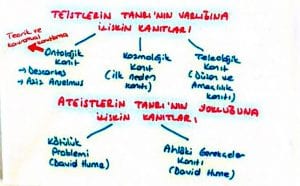 TEİSTLERİN TANRI'NIN VARLIĞINA
İLİŞKİN KANITLARI
Teorik ve
kavramsal kanıtlama
Ontolojik
Kanıt
→ Descartes
→ Aziz Anselmus
Kozmolojik
Kanıt
(ilk neden
kanıtı)
Teleolojik
Kanıt
(Düzen ve
Amaçlılık
kanıtı)
ATEİSTLERİN TANRI'NIN YOKLUĞUNA
İLİŞKİN KANITLARI
Kötülük
Problemi
(David Hume)
Ahlâki Gerekçeler
Kanıtı
(David Hume)